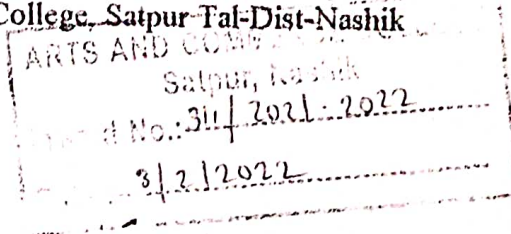 College, Satpur Tal-Dist-Nashik
ARTS AND COMM
Satpur, Nashik
d No.: 311/2021-2022
3/2/2022